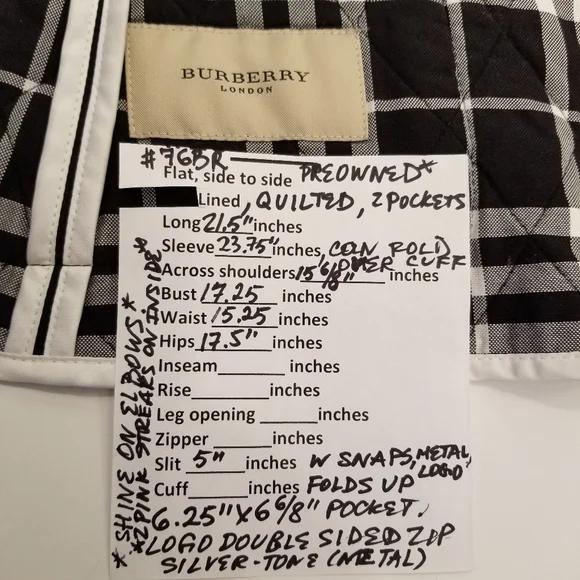 BURBERRY
LONDON
#76BR PREOWNED*
Flat, side to side
Lined, QUILTED, 2 POCKETS
Long 21.5" inches
Sleeve 23.75" inches, (CAN FOLD)
OVER CUFF
Across shoulders 15 6/8" inches
Bust 17.25 inches
Waist 15.25 inches
Hips 17.5" inches
Inseam______ inches
Rise______inches
Leg opening ______inches
Zipper ______inches
Slit 5" inches W SNAPS, METAL,
LOGO
Cuff______inches FOLDS UP
6.25" X 6 6/8" POCKET.
*LOGO DOUBLE SIDED ZIP
SILVER-TONE (METAL)
* SHINE ON ELBOWS *
*2 PINK STREAKS ON INSIDE*